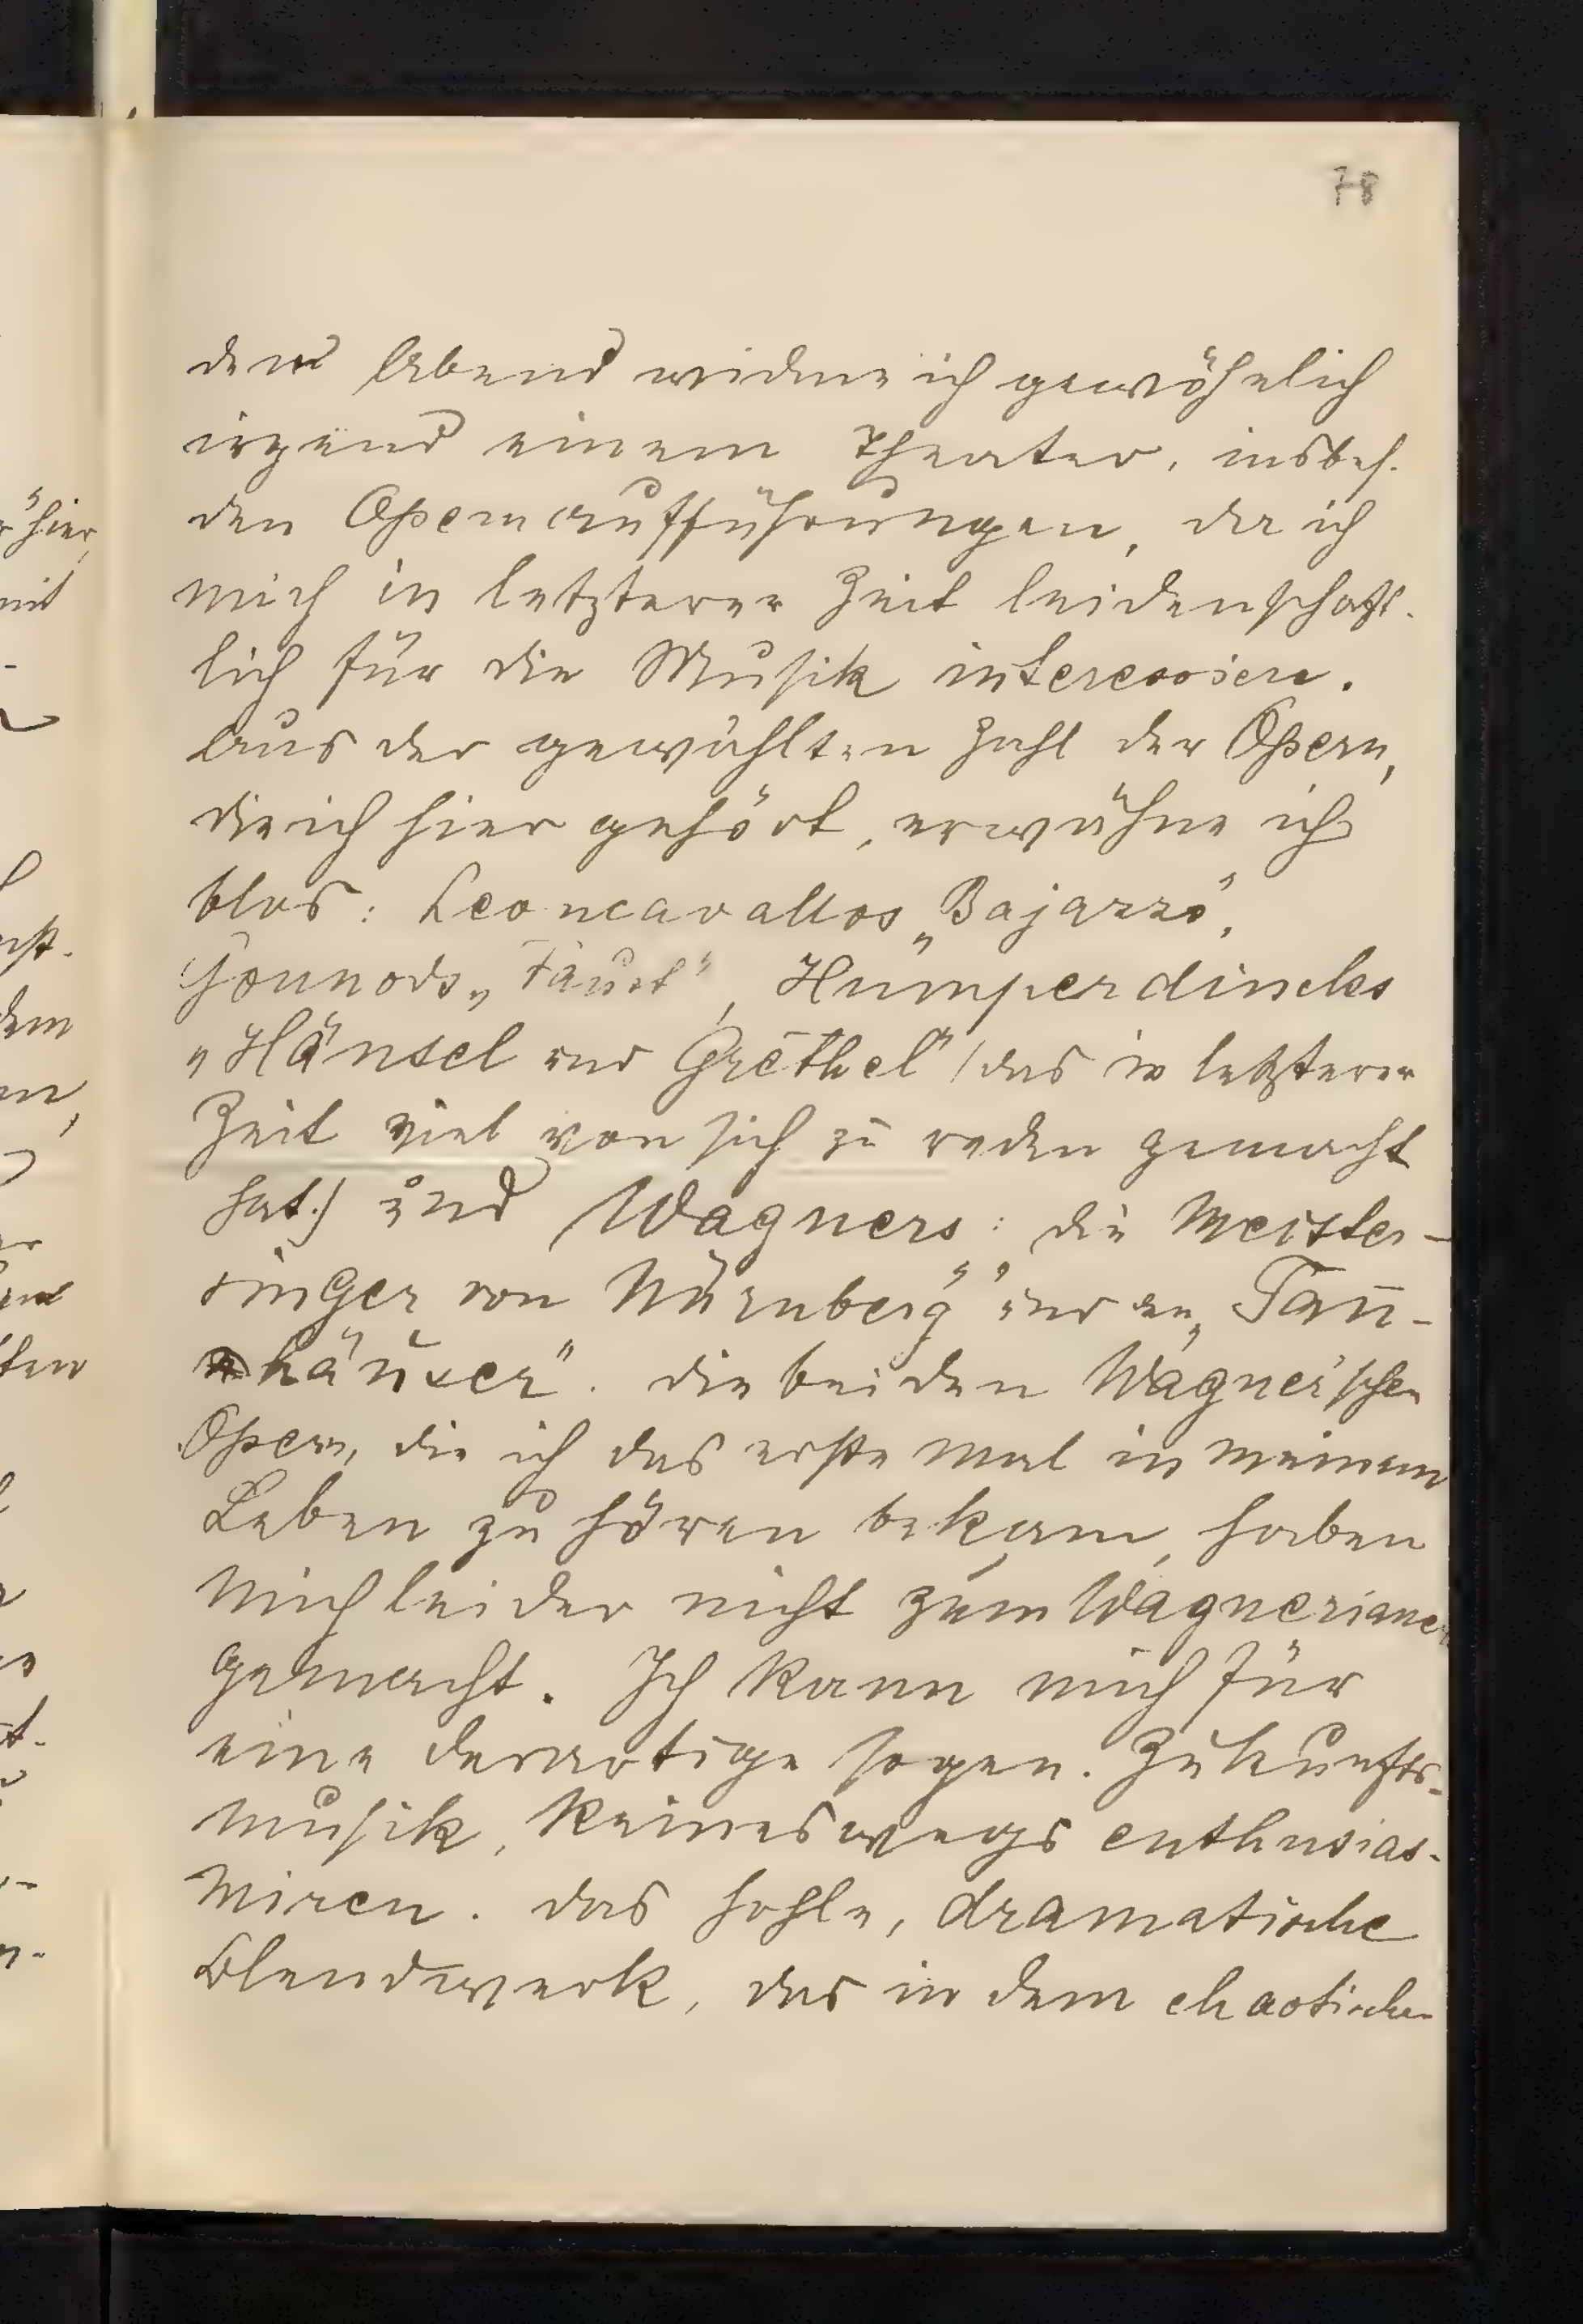 78
den Abend widme ich gewöhnlich
irgend einem Theater, insbes.
den Opernaufführungen, da ich
mich in letzterer Zeit leidenschaft-
lich für die Musik interessiere.
Aus der gewählten Zahl der Opern,
die ich hier gehört, erwähne ich
blos: Leoncavallos „Bajazzo",
Gounods „Faust", Humperdincks
„Hänsel und Grethel" (das in letzterer
Zeit viel von sich zu reden gemacht
hat.) und Wagners: die Meister-
singer von Nürnberg" und den „Tan-
häuser". Die beiden Wagner'schen
Opern, die ich das erste Mal in meinem
Leben zu hören bekam, haben
mich leider nicht zum Wagnerianer
gemacht. Ich kann mich für
eine derartige sogen. Zukunfts-
musik, keineswegs enthusias-
miren. Das hohle, dramatische
Blendwerk, das in dem chaotischen